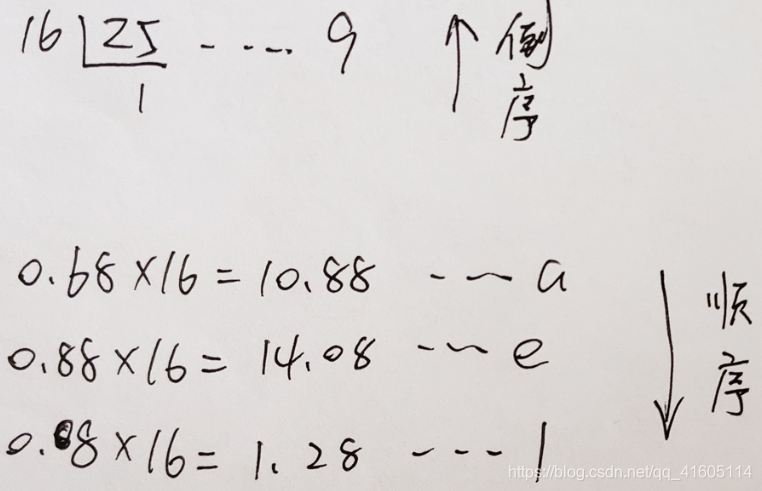 16 25 ---- 9 ↑ 倒序
1
0.68×16=10.88 --- a ↓ 顺序
0.88×16=14.08 --- e
0.08×16=1.28 --- 1
https://blog.csdn.net/qq_41605114